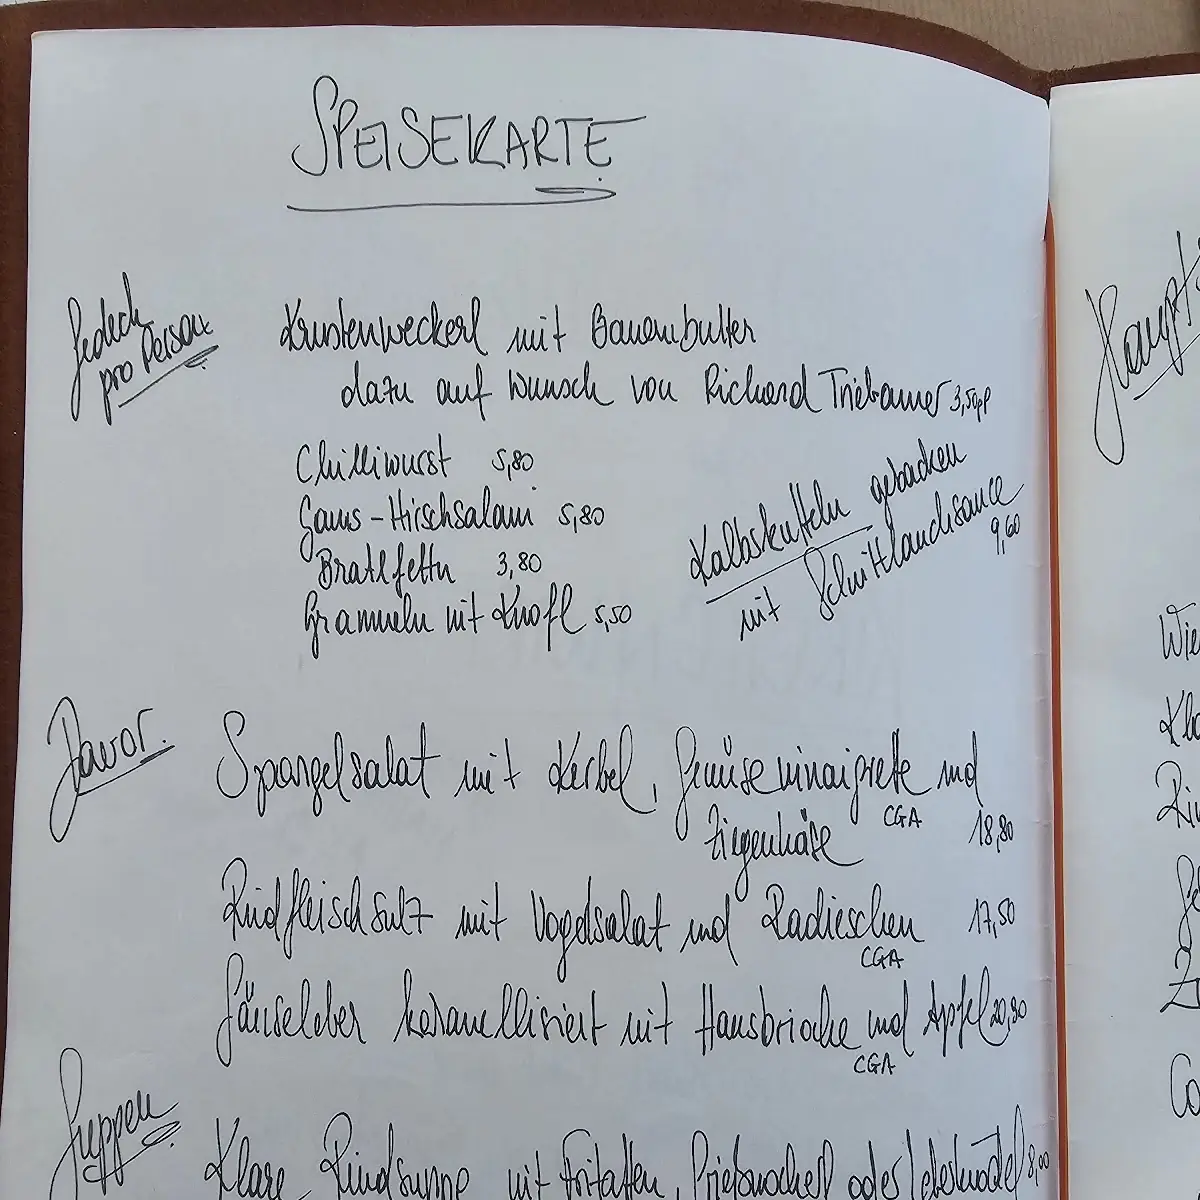 SPEISEKARTE
Gedeck
pro Person
Krustenweckerl mit Bauernbutter
dazu auf Wunsch von Richard Triebaumer 3,50pP
Chilliwurst 5,80
Gams-Hirschsalami 5,80
Bratlfettn 3,80
Grammeln mit Knofl 5,50
Kalbskutteln gebacken
mit Schnittlauchsauce
9,60
Davor.
Spargelsalat mit Kerbel, Gemüsevinaigrette und
Ziegenkäse CGA 18,80
Rindfleischsulz mit Vogelsalat und Radieschen 17,50
CGA
Gänseleber karamellisiert mit Hausbrioche und Apfel 20,80
CGA
Suppen
Klare Rindsuppe mit Fritatten, Grießnockerl oder Leberknödel 8,00
Haupts
Wie
Kla
Rin
Co